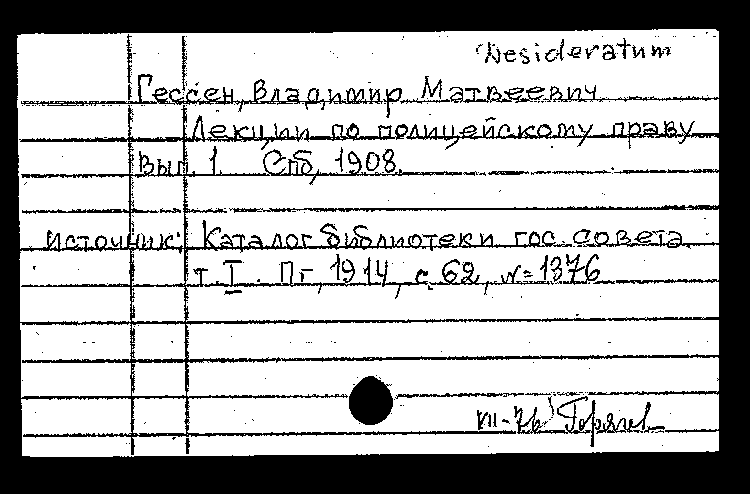 Desideratum
Гессен, Владимир Матвеевич
Лекции по полицейскому праву
Вып. 1. Спб, 1908.
Источник: Каталог библиотеки гос. совета
т. I. Пг, 1914, с. 62, №=1376
VII-76